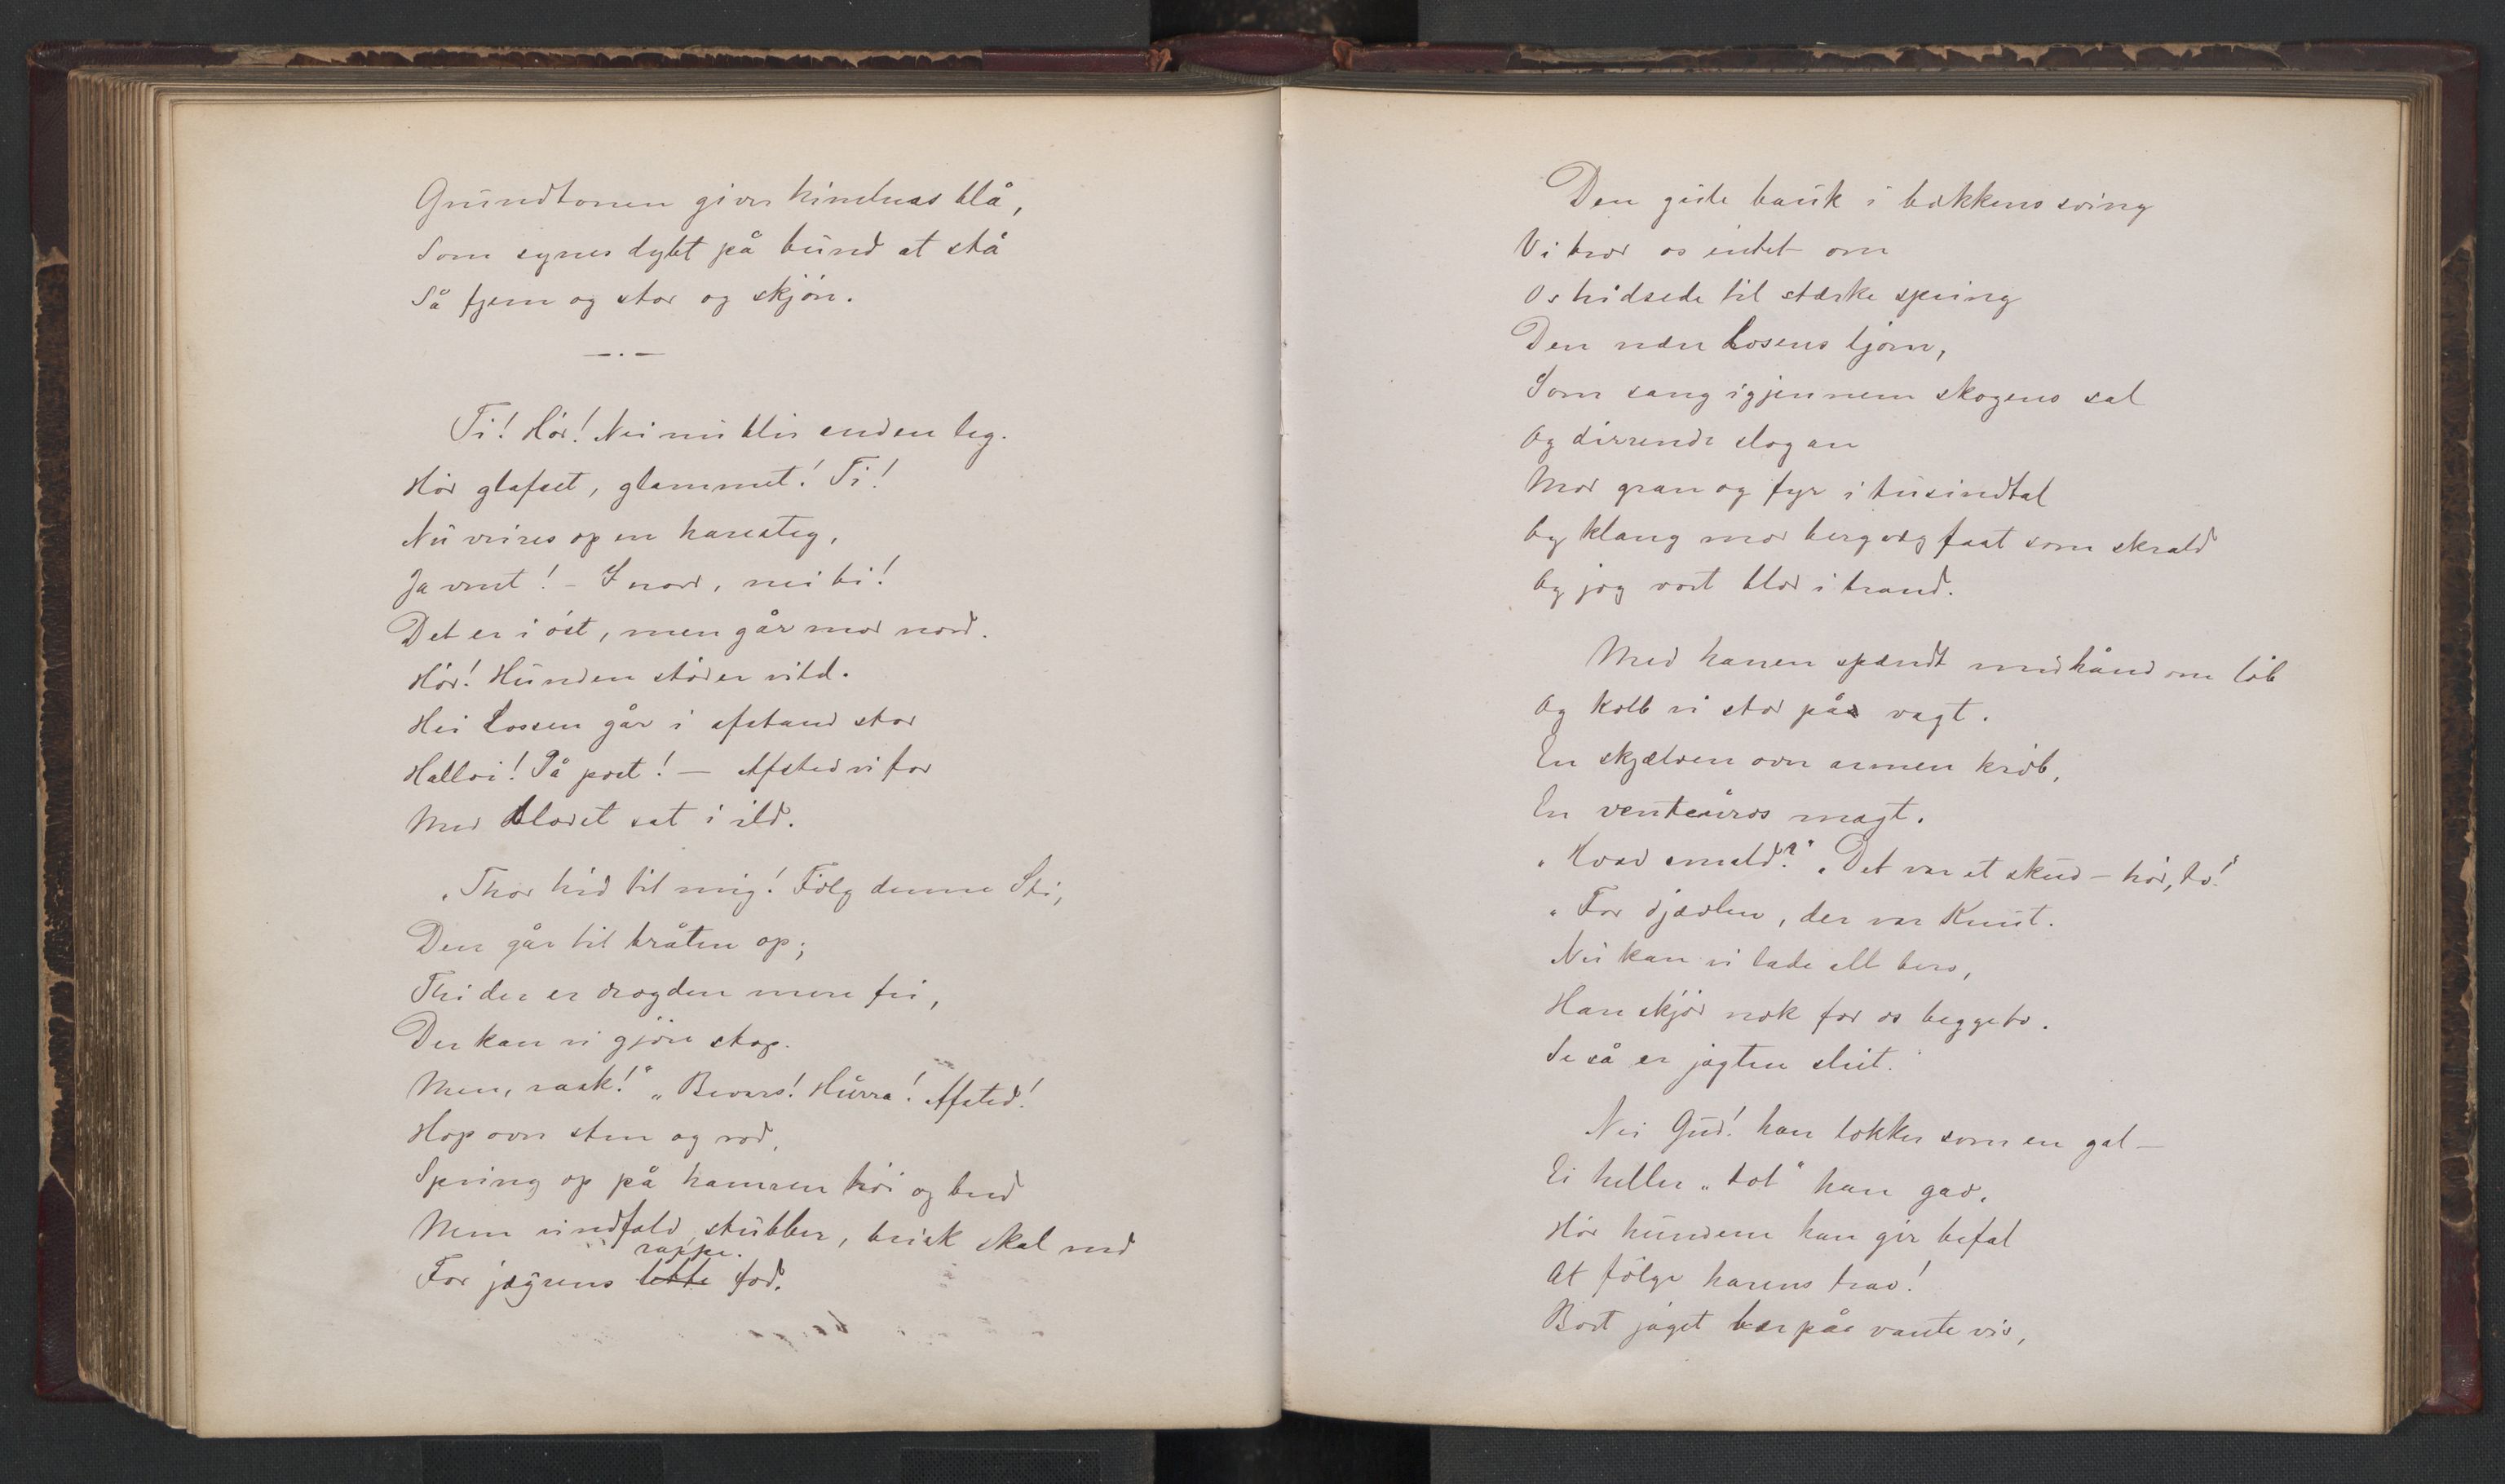 Grundtonen giver himlens blå,
Som synes dybt på bund at stå
Så fjern og stor og skjøn.
— . —
Ti! Hør! Nei nu blir anden leg.
Hør glafset, glammet! Ti!
Nu vrires op en haresteg,
Ja vent! – I nord, nei bi!
Det er i øst, men går mod nord.
Hør! Hunden støder vild.
Hei Losen går i afstand stor
Halloi! På post! — Afsted vi for
Med blodet sat i ild.
„Thor hid til mig! Følg denne Sti,
Den går til bråten op;
Thi der er drogden mere fri,
Der kan vi gjøre stop.
Men, rask!" „Bevars! Hurra! Afsted!
Hop over sten og rod,
Spring op på hamren høi og bred
Men vindfald, stubber, brisk skal ned
rappe.
For jægerens lette fod.
Den gule bauk i bækkens sving
Vi brød os intet om
Os hidsede til stærke spring
Den nære Losens ljom,
Som sang igjennem skogens sal
Og dirrende slog an
Mod gran og fyr i tusindtal
Og klang mod bergvæg fast som skrald
Og jog vort blod i brand.
Med hanen spændt med hånd om løb
Og kolb vi stod på vagt.
En skjælven over armen krøb,
En venteuros magt.
„Hvad smald?" „Det var et skud – hør, to!
„For djævlen, der var Knut.
Nu kan vi lade alt bero,
Han skjød nok for os begge to.
Se så er jagten slut."
Nei Gud! han lokker som en gal —
Ei heller „dot" han gav.
Hør hundene han gir befal
At følge harens trav!
Bort jaget bær på vante vis,